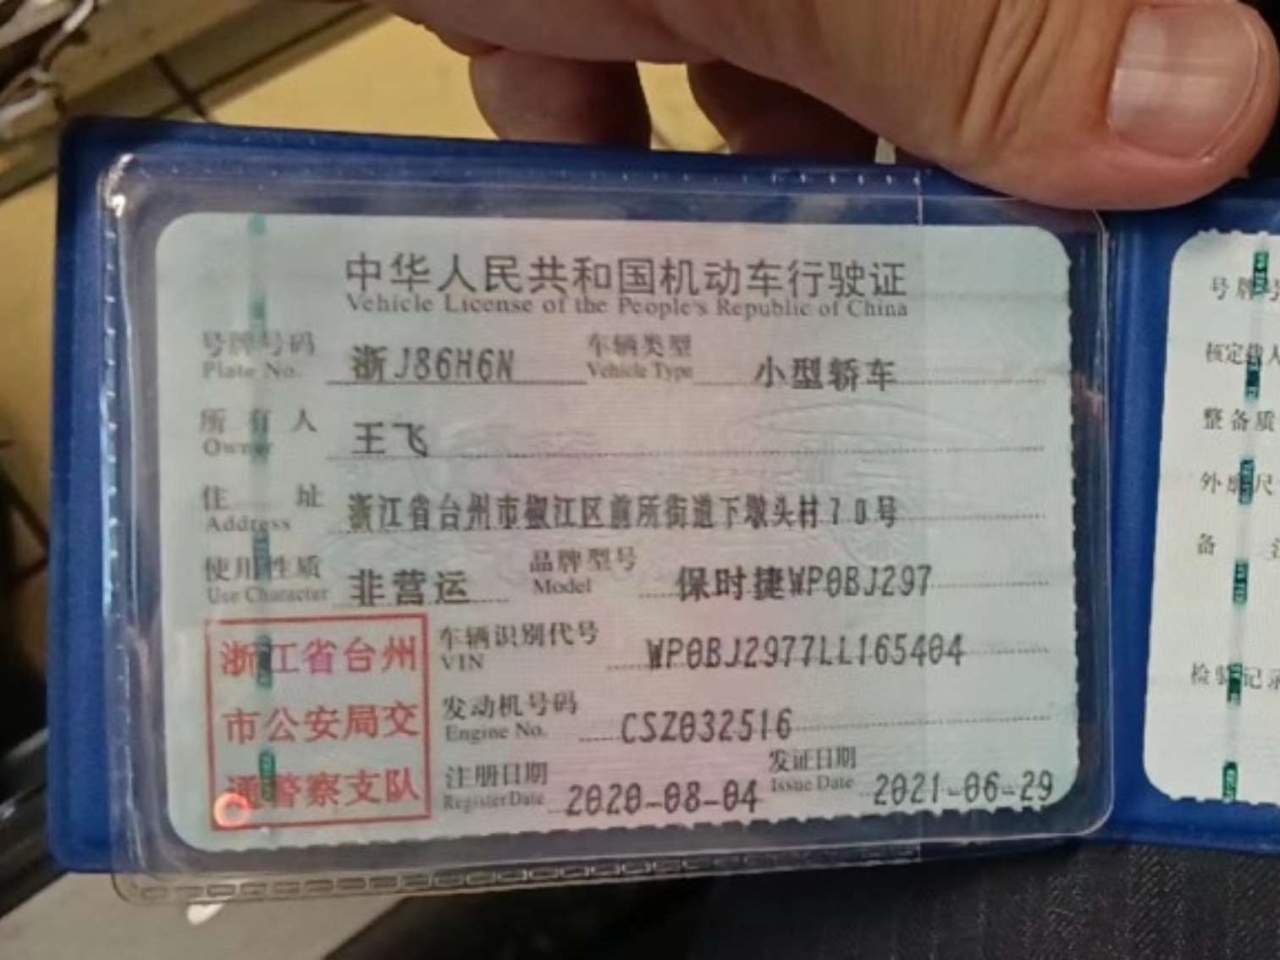 中华人民共和国机动车行驶证
Vehicle License of the People's Republic of China
号牌号码 浙J86H6N 车辆类型 小型轿车
Plate No. Vehicle Type
所有人 王飞
Owner
住址 浙江省台州市椒江区前所街道下墩头村70号
Address
使用性质 非营运 品牌型号 保时捷WP0BJ297
Use Character Model
浙江省台州
市公安局交
通警察支队
车辆识别代号 WP0BJ2977LL165404
VIN
发动机号码 CSZ032516
Engine No.
注册日期 2020-08-04 发证日期 2021-06-29
Register Date Issue Date
号牌号
核定载人
整备质
外廓尺
备 注
检验记录